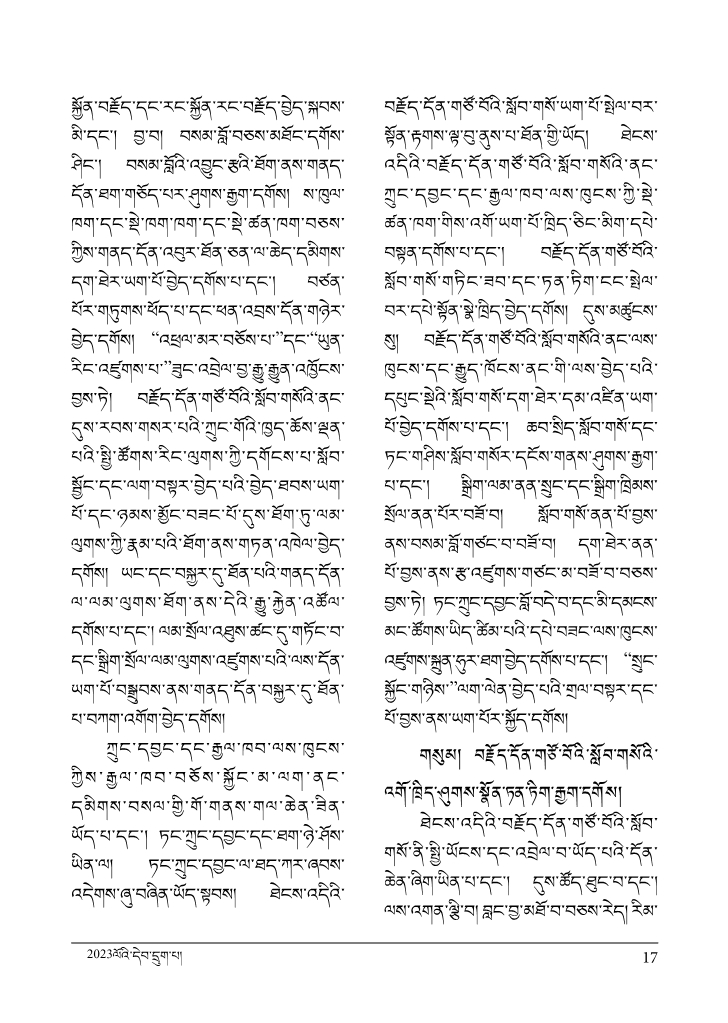 སྐྱོན་བརྗོད་དང་རང་སྐྱོན་རང་བརྗོད་བྱེད་སྐབས་
མི་དང་། བྱ་བ། བསམ་བློ་བཅས་མཐོང་དགོས་
ཤིང་། བསམ་བློའི་འབྱུང་རྩའི་ཐོག་ནས་གནད་
དོན་ཐག་གཅོད་པར་ཤུགས་རྒྱག་དགོས། ས་ཁུལ་
ཁག་དང་སྡེ་ཁག་ཁག་དང་སྡེ་ཚན་ཁག་བཅས་
ཀྱིས་གནད་དོན་འབུར་ཐོན་ཅན་ལ་ཆེད་དམིགས་
དག་ཐེར་ཡག་པོ་བྱེད་དགོས་པ་དང་། བཙན་
པོར་གཏུགས་ཕོད་པ་དང་ཕན་འབྲས་དོན་གཉེར་
བྱེད་དགོས། “འཕྲལ་མར་བཅོས་པ་”དང་“ཡུན་
རིང་འཛུགས་པ་”ཟུང་འབྲེལ་བྱ་རྒྱུ་རྒྱུན་འཁྱོངས་
བྱས་ཏེ། བརྗོད་དོན་གཙོ་བོའི་སློབ་གསོའི་ནང་
དུས་རབས་གསར་པའི་ཀྲུང་གོའི་ཁྱད་ཆོས་ལྡན་
པའི་སྤྱི་ཚོགས་རིང་ལུགས་ཀྱི་དགོངས་པ་སློབ་
སྦྱོང་དང་ལག་བསྟར་བྱེད་པའི་བྱེད་ཐབས་ཡག་
པོ་དང་ཉམས་མྱོང་བཟང་པོ་དུས་ཐོག་ཏུ་ལམ་
ལུགས་ཀྱི་རྣམ་པའི་ཐོག་ནས་གཏན་འཁེལ་བྱེད་
དགོས། ཡང་དང་བསྐྱར་དུ་ཐོན་པའི་གནད་དོན་
ལ་ལམ་ལུགས་ཐོག་ནས་དེའི་རྒྱུ་རྐྱེན་འཚོལ་
དགོས་པ་དང་། ལམ་སྲོལ་འཐུས་ཚང་དུ་གཏོང་བ་
དང་སྒྲིག་སྲོལ་ལམ་ལུགས་འཛུགས་པའི་ལས་དོན་
ཡག་པོ་བསྒྲུབས་ནས་གནད་དོན་བསྐྱར་དུ་ཐོན་
པ་བཀག་འགོག་བྱེད་དགོས།
ཀྲུང་དབྱང་དང་རྒྱལ་ཁབ་ལས་ཁུངས་
ཀྱིས་རྒྱལ་ཁབ་བཅོས་སྐྱོང་མ་ལག་ནང་
དམིགས་བསལ་གྱི་གོ་གནས་གལ་ཆེན་ཟིན་
ཡོད་པ་དང་། ཏང་ཀྲུང་དབྱང་དང་ཐག་ཉེ་ཤོས་
ཡིན་ལ། ཏང་ཀྲུང་དབྱང་ལ་ཐད་ཀར་ཞབས་
འདེགས་ཞུ་བཞིན་ཡོད་སྟབས། ཐེངས་འདིའི་
བརྗོད་དོན་གཙོ་བོའི་སློབ་གསོ་ཡག་པོ་སྤེལ་བར་
སྟོན་རྟགས་ལྟ་བུ་ནུས་པ་ཐོན་གྱི་ཡོད། ཐེངས་
འདིའི་བརྗོད་དོན་གཙོ་བོའི་སློབ་གསོའི་ནང་
ཀྲུང་དབྱང་དང་རྒྱལ་ཁབ་ལས་ཁུངས་ཀྱི་སྡེ་
ཚན་ཁག་གིས་འགོ་ཡག་པོ་ཁྲིད་ཅིང་མིག་དཔེ་
བསྟན་དགོས་པ་དང་། བརྗོད་དོན་གཙོ་བོའི་
སློབ་གསོ་གཏིང་ཟབ་དང་ཏན་ཏིག་ངང་སྤེལ་
བར་དཔེ་སྟོན་སྣེ་ཁྲིད་བྱེད་དགོས། དུས་མཚུངས་
སུ། བརྗོད་དོན་གཙོ་བོའི་སློབ་གསོའི་ནང་ལས་
ཁུངས་དང་རྒྱུད་ཁོངས་ནང་གི་ལས་བྱེད་པའི་
དཔུང་སྡེའི་སློབ་གསོ་དག་ཐེར་དམ་འཛིན་ཡག་
པོ་བྱེད་དགོས་པ་དང་། ཆབ་སྲིད་སློབ་གསོ་དང་
ཏང་གཤིས་སློབ་གསོར་དངོས་གནས་ཤུགས་རྒྱག་
པ་དང་། སྒྲིག་ལམ་ནན་སྲུང་དང་སྒྲིག་ཁྲིམས་
སྲོལ་ནན་པོར་བཟོ་བ། སློབ་གསོ་ནན་པོ་བྱས་
ནས་བསམ་བློ་གཙང་བ་བཟོ་བ། དག་ཐེར་ནན་
པོ་བྱས་ནས་རྩ་འཛུགས་གཙང་མ་བཟོ་བ་བཅས་
བྱས་ཏེ། ཏང་ཀྲུང་དབྱང་བློ་བདེ་བ་དང་མི་དམངས་
མང་ཚོགས་ཡིད་ཚིམ་པའི་དཔེ་བཟང་ལས་ཁུངས་
འཛུགས་སྐྲུན་ཧུར་ཐག་བྱེད་དགོས་པ་དང་། “སྲུང་
སྐྱོང་གཉིས་”ལག་ལེན་བྱེད་པའི་གྲལ་བསྟར་དང་
པོ་བྱས་ནས་ཡག་པོར་སྐྱོད་དགོས།
གསུམ། བརྗོད་དོན་གཙོ་བོའི་སློབ་གསོའི་
འགོ་ཁྲིད་ཤུགས་སྣོན་ཏན་ཏིག་རྒྱག་དགོས།
ཐེངས་འདིའི་བརྗོད་དོན་གཙོ་བོའི་སློབ་
གསོ་ནི་སྤྱི་ཡོངས་དང་འབྲེལ་བ་ཡོད་པའི་དོན་
ཆེན་ཞིག་ཡིན་པ་དང་། དུས་ཚོད་ཐུང་བ་དང་།
ལས་འགན་ལྕི་བ། བླང་བྱ་མཐོ་བ་བཅས་རེད། རིམ་
2023ལོའི་དེབ་དྲུག་པ།
17